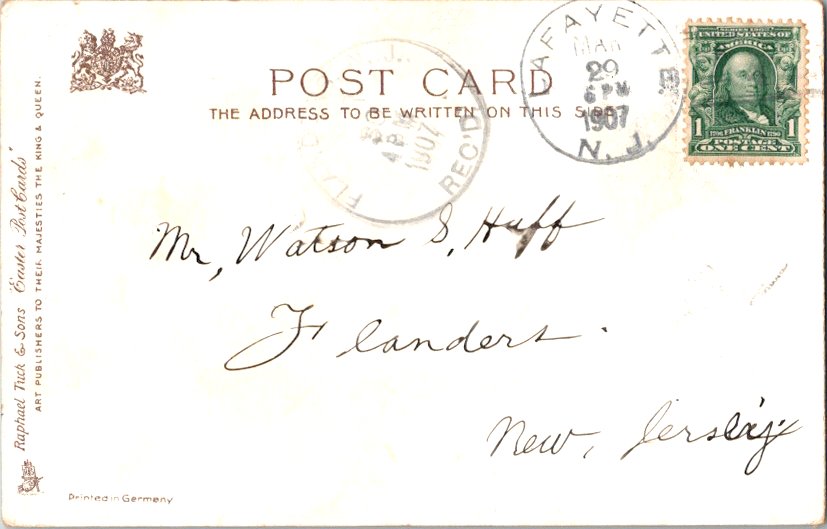 POST CARD
THE ADDRESS TO BE WRITTEN ON THIS SIDE
LAFAYETTE
MAR
29
6 PM
1907
N. J.
4 PM
1907
REC'D
SERIES 1902
UNITED STATES OF
AMERICA
1 FRANKLIN 1
POSTAGE
ONE CENT
Mr, Watson S, Huff
Flanders.
New, Jersey
Raphael Tuck & Sons "Easter Post Cards"
ART PUBLISHERS TO THEIR MAJESTIES THE KING & QUEEN.
Printed in Germany